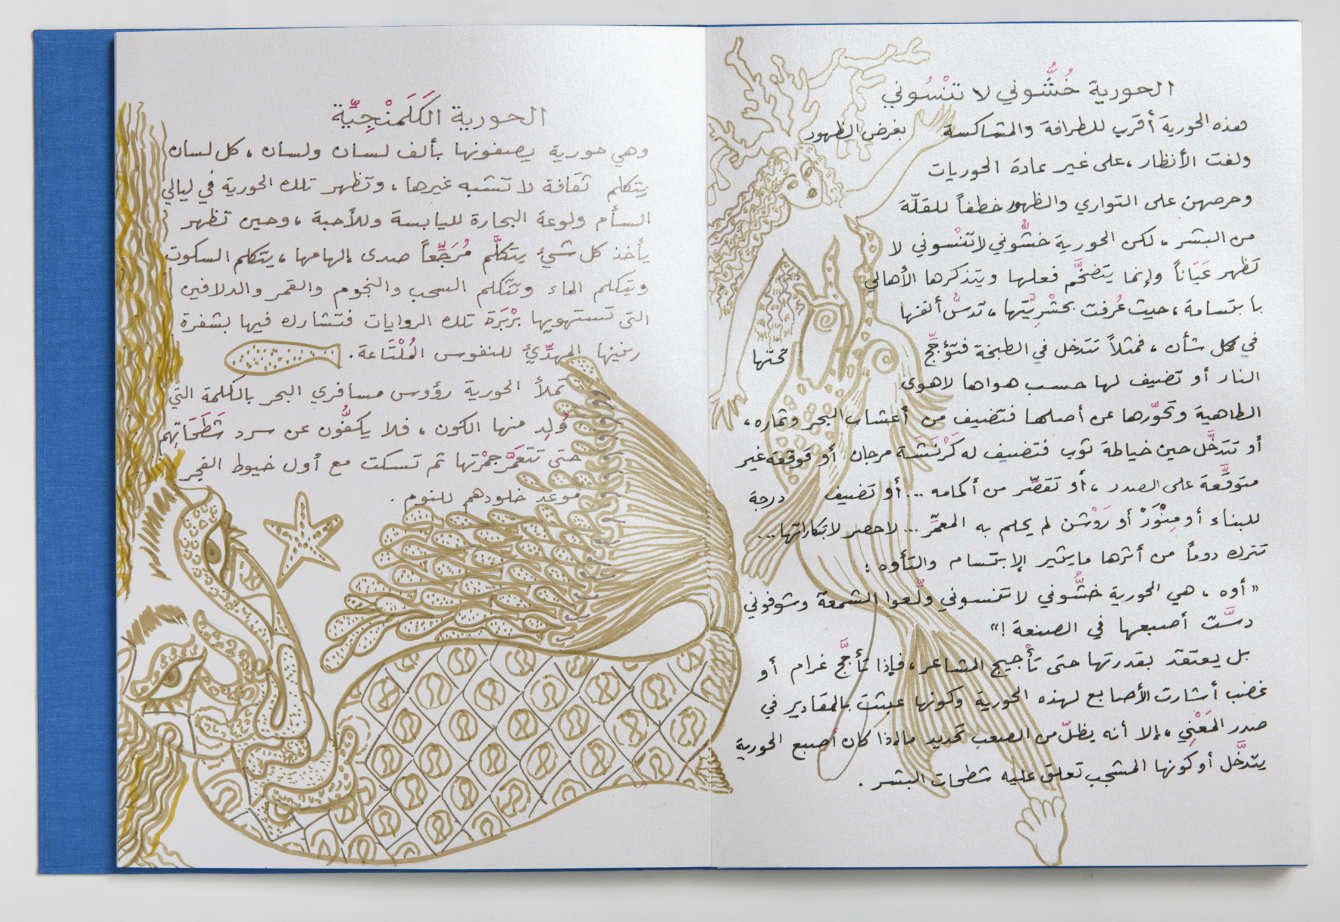 الحورية خُشُّوني لا تنْسُوني
هذه الحورية أقرب للطرافة والمشاكسة بغرض الظهور
ولفت الأنظار، على غير عادة الحوريات
وحرصهن على التواري والظهور خطفاً للقلّة
من البشر، لكن الحورية خشُّوني لا تنْسوني لا
تظهر عَيَاناً وإنما يتضخَّم فعلها ويتذكرها الأهالي
بابتسامة، حيث عُرفت بحشْرِيَّتها، تدسُّ أنفها
في كل شأن، فمثلاً تتدخل في الطبخة فتؤجِّج تحتها
النار أو تضيف لها حسب هواها لا هوى
الطاهية وتحوّرها عن أصلها فتضيف من أعشاب البحر وثماره،
أو تتدخَّل حين خياطة ثوب فتضيف له كَرْنَشة مرجان أو قوقعة غير
متوقَّعة على الصدر، أو تقصّر من أكمامه... أو تضيف درجة
للبناء أو مِنْوَرْ أو رَوْشن لم يحلم به المعمِّر... لا حصر لابتكاراتها...
تترك دوماً من أثرها ما يثير الإبتسام والتأوه:
"أوه، هي الحورية خشُّوني لا تنسوني ولّعوا الشمعة وشوفوني
دسَّتْ أصبعها في الصنعة!"
بل يعتقد بقدرتها حتى تأجيج المشاعر، فإذا تأجَّج غرام أو
غضب أشارت الأصابع لهذه الحورية وكونها عبثت بالمقادير في
صدر المَعْنِي، إلا أنه يظلّ من الصعب تحديد ما إذا كان أصبع الحورية
يتدخَّل أو كونها المشجب تعلق عليه شطحات البشر.
الحورية الكَلَمنْجِيَّة
وهي حورية يصفونها بألف لسان ولسان، كل لسان
يتكلم ثقافة لا تشبه غيرها، وتظهر تلك الحورية في ليالي
السأم ولوعة البحارة لليابسة وللأحبة، وحين تظهر
يأخذ كل شيْ يتكلَّم مُرَجِّعاً صدى إلهامها، يتكلم السكوت
ويتكلم الماء وتتكلم السحب والنجوم والقمر والدلافين
التي تستهويها بَرْبَرَة تلك الروايات فتشارك فيها بشفرة
رنينها المهدِّئ للنفوس المُلْتَاعة.
تملأ الحورية رؤوس مسافري البحر بالكلمة التي
وُلِد منها الكون، فلا يكفُّون عن سرد شَطَحَاتِهم
حتى تتعمَّر جمْرتها ثم تسكت مع أول خيوط الفجر
موعد خلودهم للنوم.